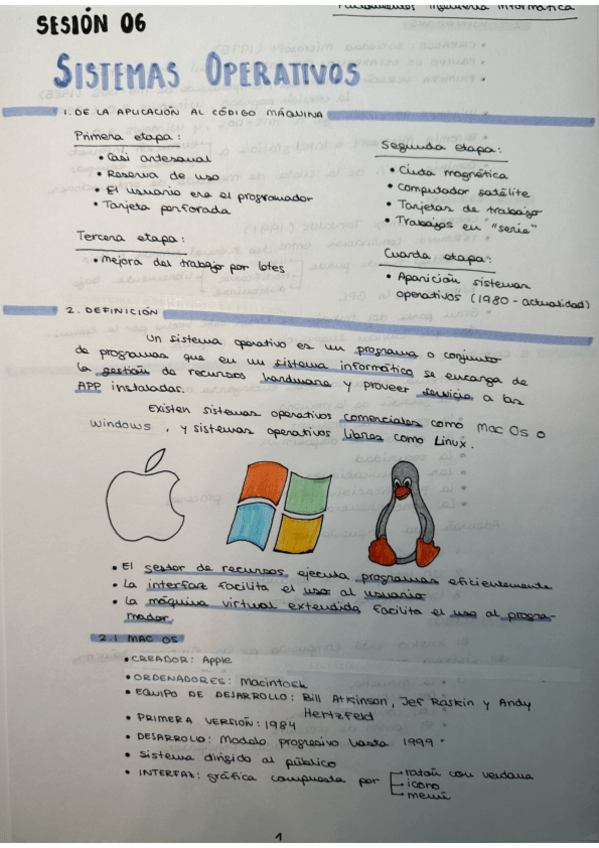 Fundamentos Ingeniería Informática
SESIÓN 06
SISTEMAS OPERATIVOS
1. DE LA APLICACIÓN AL CÓDIGO MÁQUINA
Primera etapa:
• Casi artesanal
• Reserva de uso
• El usuario era el programador
• Tarjeta perforada
Segunda etapa:
• Cinta magnética
• Computador satélite
• Tarjetas de trabajo
• Trabajos en "serie"
Tercera etapa:
• Mejora del trabajo por lotes
Cuarta etapa:
• Aparición sistemas
operativos (1980 - actualidad)
2. DEFINICIÓN
Un sistema operativo es un programa o conjunto
de programas que en un sistema informático se encarga de
la gestión de recursos hardware y proveer servicio a las
APP instaladas.
Existen sistemas operativos comerciales como Mac Os o
Windows, y sistemas operativos libres como Linux.
• El gestor de recursos ejecuta programas eficientemente
• La interfaz facilita el uso al usuario
• La máquina virtual extendida facilita el uso al progra-
mador.
2.1 MAC OS
• CREADOR: Apple
• ORDENADORES: Macintosh
• EQUIPO DE DESARROLLO: Bill Atkinson, Jef Raskin y Andy
Hertzfeld
• PRIMERA VERSIÓN: 1984
• DESARROLLO: Modelo progresivo hasta 1999.
• Sistema dirigido al público
• INTERFAZ: gráfica compuesta por ratón con ventana
icono
menú
1